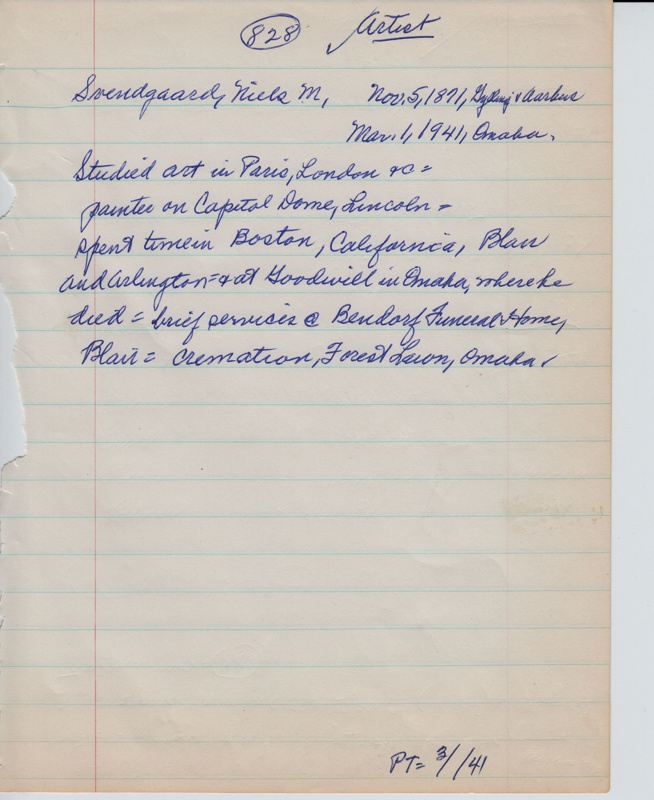 828 Artist
Svendgaard, Niels M, Nov. 5, 1871, Gylling v Aarhus
Mar. 1, 1941, Omaha.
Studied art in Paris, London &c =
painter on Capitol Dome, Lincoln =
spent time in Boston, California, Blair
and Arlington = & at Goodwill in Omaha, where he
died = brief services @ Bendorf Funeral Home,
Blair = Cremation, Forest Lawn, Omaha.
PT = 3/1/41